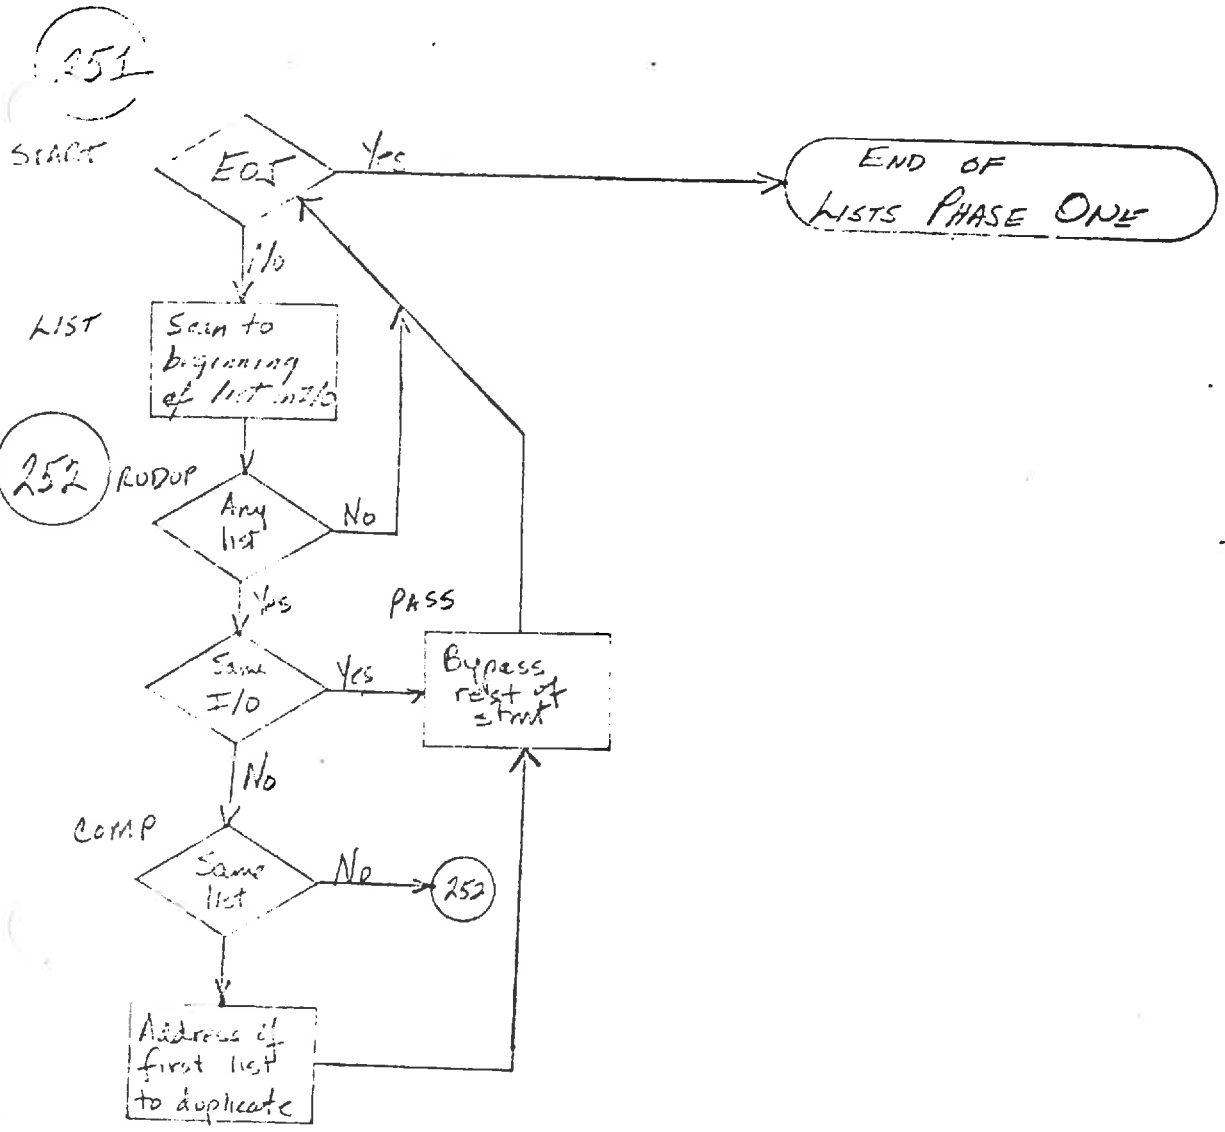 251
START
EOJ
Yes
END OF
LISTS PHASE ONE
No
LIST
Scan to
beginning
of list in I/O
252
RUDUP
Any
list
No
Yes
PASS
Same
I/O
Yes
Bypass
rest of
stmt
No
COMP
Same
list
No
252
Address of
first list
to duplicate